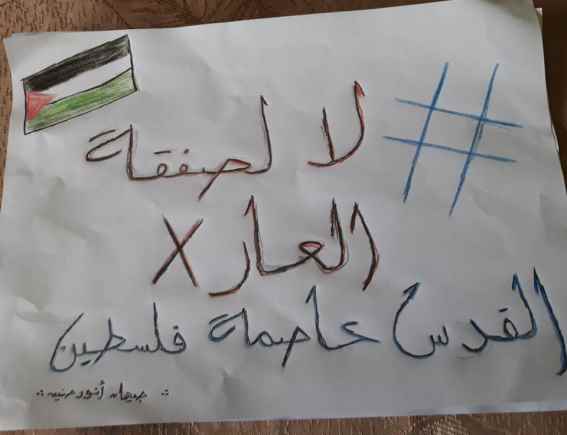 # لا لصفقة
العار X
القدس عاصمة فلسطين
جيهان أنور